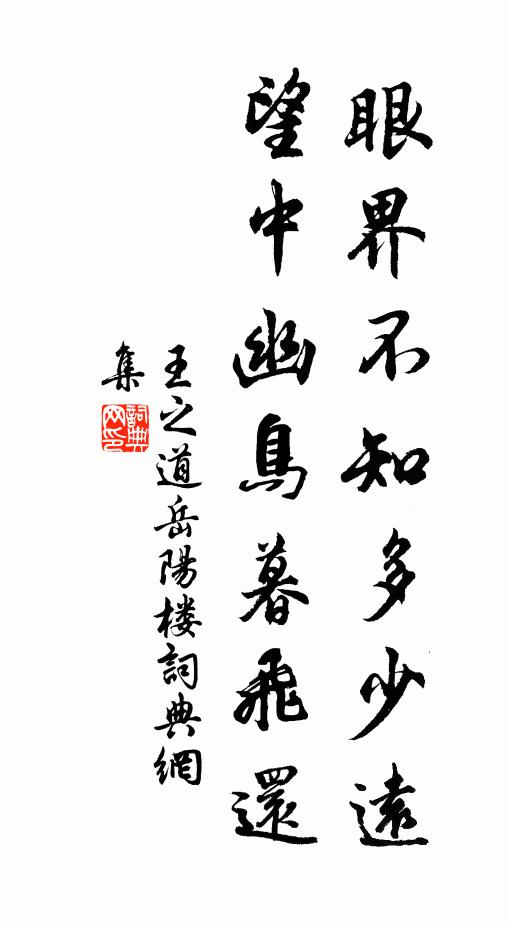 眼界不知多少遠
望中幽鳥暮飛還
王之道岳陽楼詞典網
集
詞典
网印